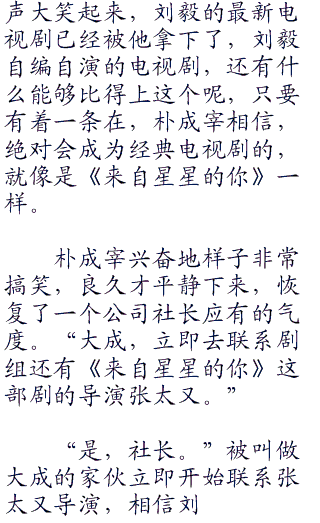 声大笑起来，刘毅的最新电
视剧已经被他拿下了，刘毅
自编自演的电视剧，还有什
么能够比得上这个呢，只要
有着一条在，朴成宰相信，
绝对会成为经典电视剧的，
就像是《来自星星的你》一
样。
朴成宰兴奋地样子非常
搞笑，良久才平静下来，恢
复了一个公司社长应有的气
度。“大成，立即去联系剧
组还有《来自星星的你》这
部剧的导演张太又。”
“是，社长。”被叫做
大成的家伙立即开始联系张
太又导演，相信刘